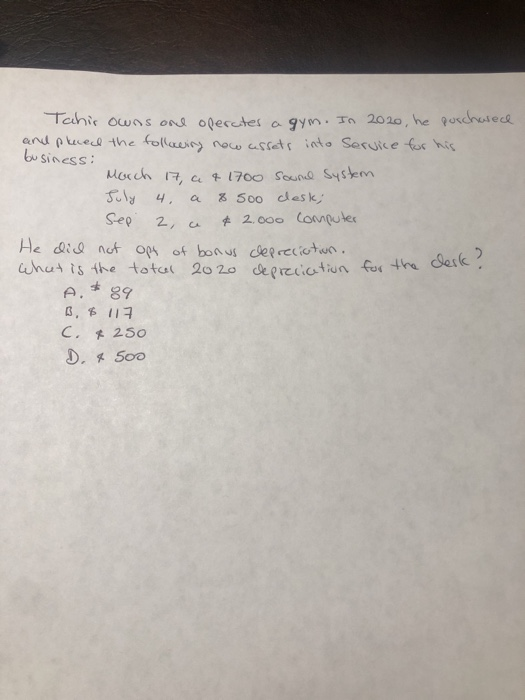 Tahir owns and operates a gym. In 2020, he purchased
and placed the following new assets into Service for his
business:
March 17, a $ 1700 Sound System
July 4, a $ 500 desk;
Sep 2, a $ 2.000 Computer
He did not opt of bonus depreciation.
What is the total 2020 depreciation for the desk?
A. $ 89
B. $ 117
C. $ 250
D. $ 500